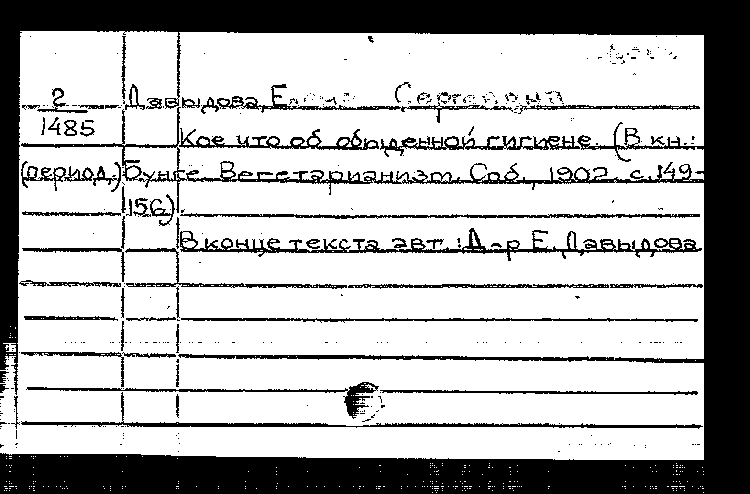 2 Давыдова, Елена Сергеевна
1485 Кое что об обыденной гигиене. (В кн.:
(период.) Бунге Вегетарианизм. Спб., 1902. с.149-
156).
В конце текста авт.: Д-р Е. Давыдова